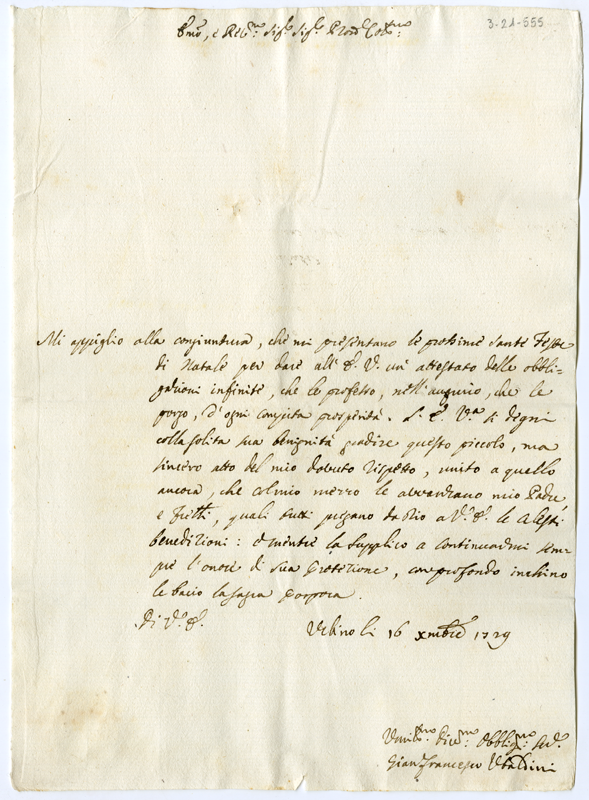 3-21-555
Emo, e Revmo: Sigr. Sigr. Pron Colmo:
Mi appiglio alla congiuntura, che mi presentano le prossime Sante Feste
di Natale per dare all' E. V. un' attestato delle obbli=
gazioni infinite, che le professo, nell' augurio, che le
porgo, d' ogni compita prosperità. L' E. Va. si degni
colla solita sua benignità gradire questo piccolo, ma
sincero atto del mio dovuto rispetto, unito a quello
ancora, che col mio mezzo le avvanzano mio Padre
e Frelli, quali tutti pregano da Dio a V. E. le Celesti
benedizioni: e mentre la supplico a continuarmi sem=
pre l' onore di sua Protezione, con profondo inchino
le bacio la sagra Porpora.
Di V. E.
Urbino li 16 Xmbre 1729
Umilmo: Divmo: Obbligmo Serv.
Gianfrancesco Ubaldini